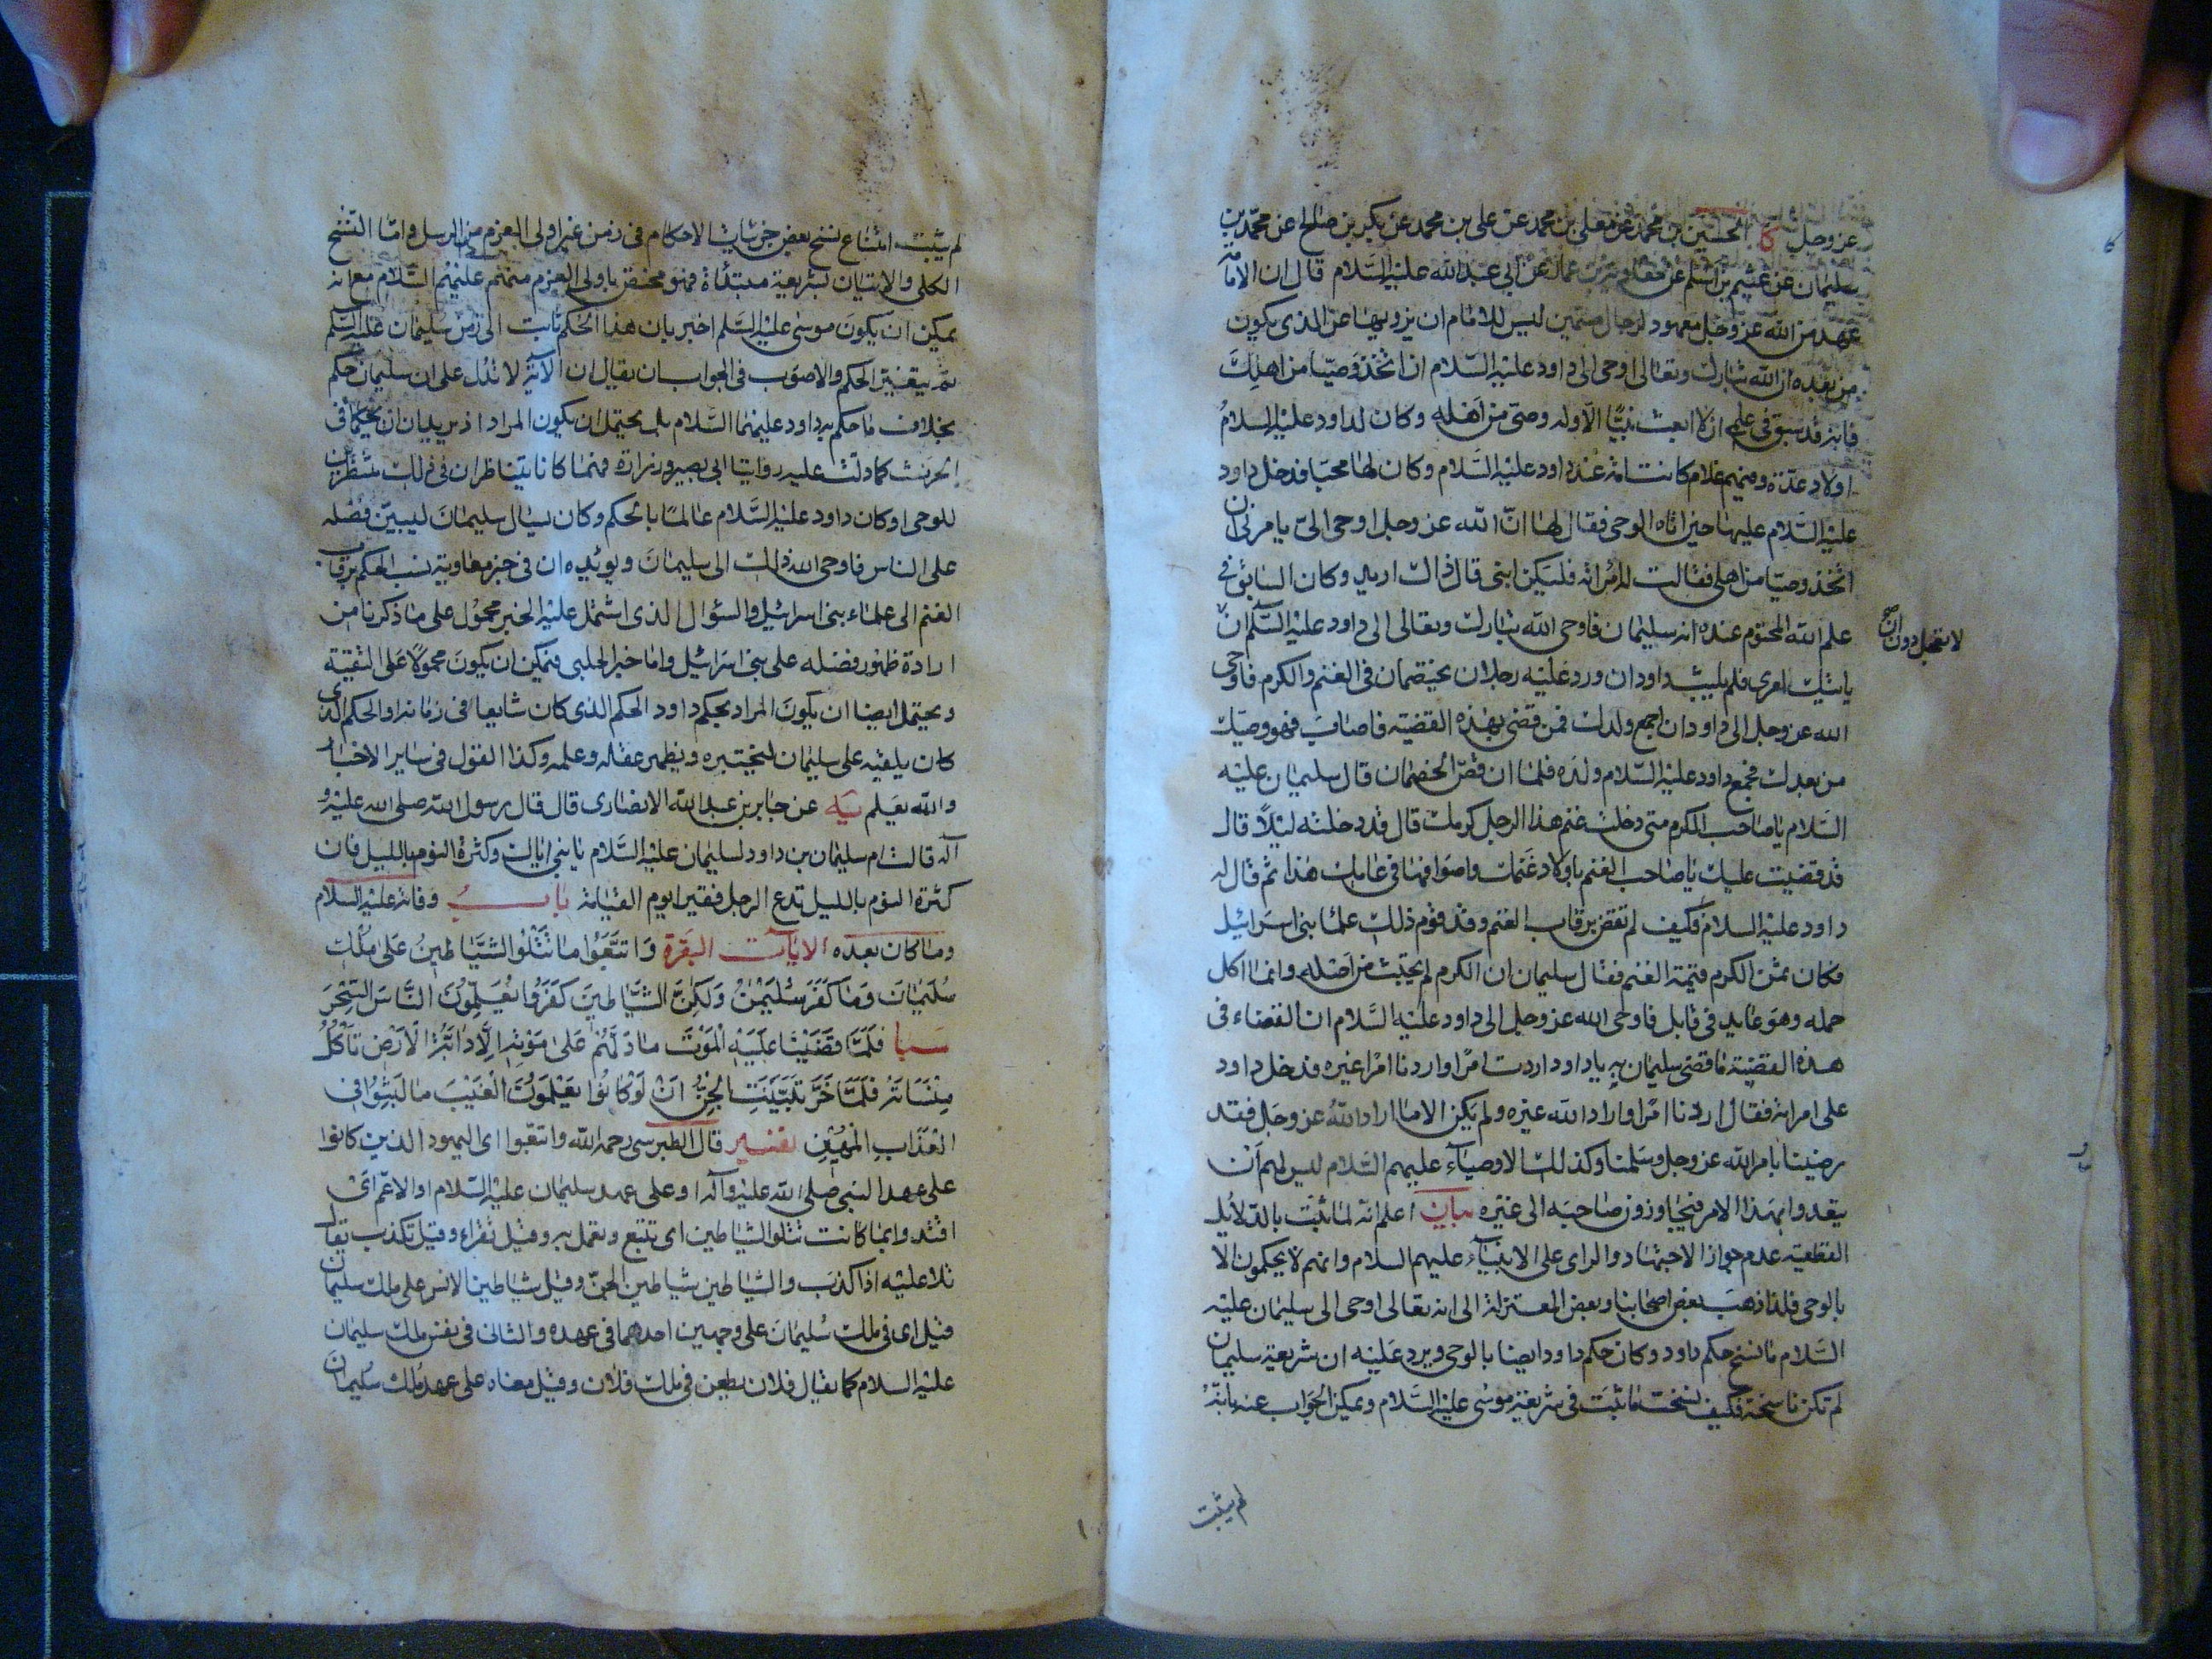 عز وجل كا الحسين بن محمد عن معلى بن محمد عن على بن محمد عن بكر بن صالح عن محمد بن
سليمان عن عثيم بن اسلم عن معاوية بن عمار عن ابي عبد الله عليه السلام قال ان الامامة
عهد من الله عز وجل معهود لرجال مسمين ليس للامام ان يزويها عن الذى يكون
من بعده ان الله تبارك وتعالى اوحى الى داود عليه السلام ان اتخذ وصيا من اهلك
فانه قد سبق فى علمى ان لا ابعث نبيا الا وله وصى من اهله وكان لداود عليه السلام
اولاد عدة وفيهم غلام كانت امه عند داود عليه السلام وكان لها محبا فدخل داود
عليه السلام عليها حين اتاه الوحى فقال لها ان الله عز وجل اوحى الى يامرنى ان
اتخذ وصيا من اهلى فقالت له امراته فليكن ابنى قال ذاك اريد وكان السابق فى
علم الله المحتوم عنده انه سليمان فاوحى الله تبارك وتعالى الى داود عليه السلم ان
لا تعجل دون ان صح
ياتيك امرى فلم يلبث داود ان ورد عليه رجلان يختصمان فى الغنم والكرم فاوحى
الله عز وجل الى داود ان اجمع ولدك فمن قضى بهذه القضية فاصاب فهو وصيك
من بعدك فجمع داود عليه السلام ولده فلما ان قص الخصمان قال سليمان عليه
السلام يا صاحب الكرم متى دخلت غنم هذا الرجل كرمك قال قد دخلته ليلا قال
قد قضيت عليك يا صاحب الغنم باولاد غنمك واصوافها فى عامك هذا ثم قال له
داود عليه السلام فكيف لم تقض برقاب الغنم وقد قوم ذلك علما بنى اسرائيل
فكان ثمن الكرم قيمة الغنم فقال سليمان ان الكرم لم يجتث من اصله وانما اكل
حمله وهو عايد فى قابل فاوحى الله عز وجل الى داود عليه السلام ان القضاء فى
هذه القضية ما قضى سليمان به يا داود اردت امرا واردنا امرا غيره فدخل داود
على امراته فقال اردنا امرا واراد الله غيره ولم يكن الا ما اراد الله عز وجل فقد
رضينا بامر الله عز وجل وسلمنا وكذلك الاوصياء عليهم السلام ليس لهم ان
يتعدوا بهذا الامر فيجاوزون صاحبه الى غيره بيان اعلم انه لما ثبت بالدلايل
القطعية عدم جواز الاجتهاد والراى على الانبياء عليهم السلام وانهم لا يحكمون الا
بالوحى فلذا ذهب بعض اصحابنا وبعض المعتزلة الى انه تعالى اوحى الى سليمان عليه
السلام ما نسخ حكم داود وكان حكم داود ايضا بالوحى ويرد عليه ان شريعة سليمان
لم تكن ناسخة فكيف نسخت ما ثبت فى شريعة موسى عليه السلام ويمكن الجواب عنه بانه
لم يثبت
لم يثبت امتناع نسخ بعض جزئيات الاحكام فى زمن غير اولى العزم من الرسل واما النسخ
الكلى والاتيان بشريعة مبتدأة فهو مختص باولى العزم منهم عليهم السلام مع انه
يمكن ان يكون موسى عليه السلم اخبر بان هذا الحكم ثابت الى زمن سليمان عليه السلم
ثم يتغير الحكم والاصوب فى الجواب ان يقال ان الآية لا تدل على ان سليمان حكم
بخلاف ما حكم به داود عليهما السلام بل يحتمل ان يكون المراد اذ يريدان ان يحكما فى
الحرث كما دلت عليه روايتا ابى بصير وزرارة فهما كانا يتناظران فى ذلك منتظرين
للوحى او كان داود عليه السلام عالما بالحكم وكان يسال سليمان ليبين فضله
على الناس فاوحى الله ذلك الى سليمان ويؤيده ان فى خبر معاوية نسب الحكم برقاب
الغنم الى علماء بنى اسرائيل والسؤال الذى اشتمل عليه الخبر محمول على ما ذكرنا من
ارادة ظهور فضله على بنى اسرائيل واما خبر الحلبى فيمكن ان يكون محمولا على التقية
ويحتمل ايضا ان يكون المراد بحكم داود الحكم الذى كان شايعا فى زمانه او الحكم الذى
كان يلقيه على سليمان ليختبره ويظهر عقله وعلمه وكذا القول فى ساير الاخبار
والله يعلم يه عن جابر بن عبد الله الانصارى قال قال رسول الله صلى الله عليه و
آله قالت ام سليمان بن داود لسليمان عليه السلام يا بنى اياك وكثرة النوم بالليل فان
كثرة النوم بالليل تدع الرجل فقيرا يوم القيامة باب وفاته عليه السلام
وما كان بعده الايات البقرة وَاتَّبَعُوا ما تَتْلُوا الشَّياطينُ عَلى مُلْكِ
سُلَيْمانَ وَما كَفَرَ سُلَيْمنُ وَلكِنَّ الشَّياطينَ كَفَرُوا يُعَلِّمُونَ النَّاسَ السِّحْرَ
سبا فَلَمَّا قَضَيْنا عَلَيْهِ الْمَوْتَ ما دَلَّهُمْ عَلى مَوْتِه اِلَّا دابَّةُ الْاَرْضِ تَأْكُلُ
مِنْسَاَتَهُ فَلَمَّا خَرَّ تَبَيَّنَتِ الْجِنُّ اَنْ لَوْ كانُوا يَعْلَمُونَ الْغَيْبَ ما لَبِثُوا فِى
الْعَذابِ الْمُهينِ تفسير قال الطبرسى رحمه الله واتبعوا اى اليهود الذين كانوا
على عهد النبى صلى الله عليه وآله او على عهد سليمان عليه السلام او الاعم اى
اقتدوا بما كانت تتلوا الشياطين اى تتبع وتعمل به وقيل تقراء وقيل تكذب يقال
تلا عليه اذا كذب والشياطين شياطين الجن وقيل شياطين الانس على ملك سليمان
قيل اى فى ملك سليمان على وجهين احدهما فى عهده والثانى فى نفس ملك سليمان
عليه السلام كما يقال فلان يطعن فى ملك فلان وقيل معناه على عهد ملك سليمان